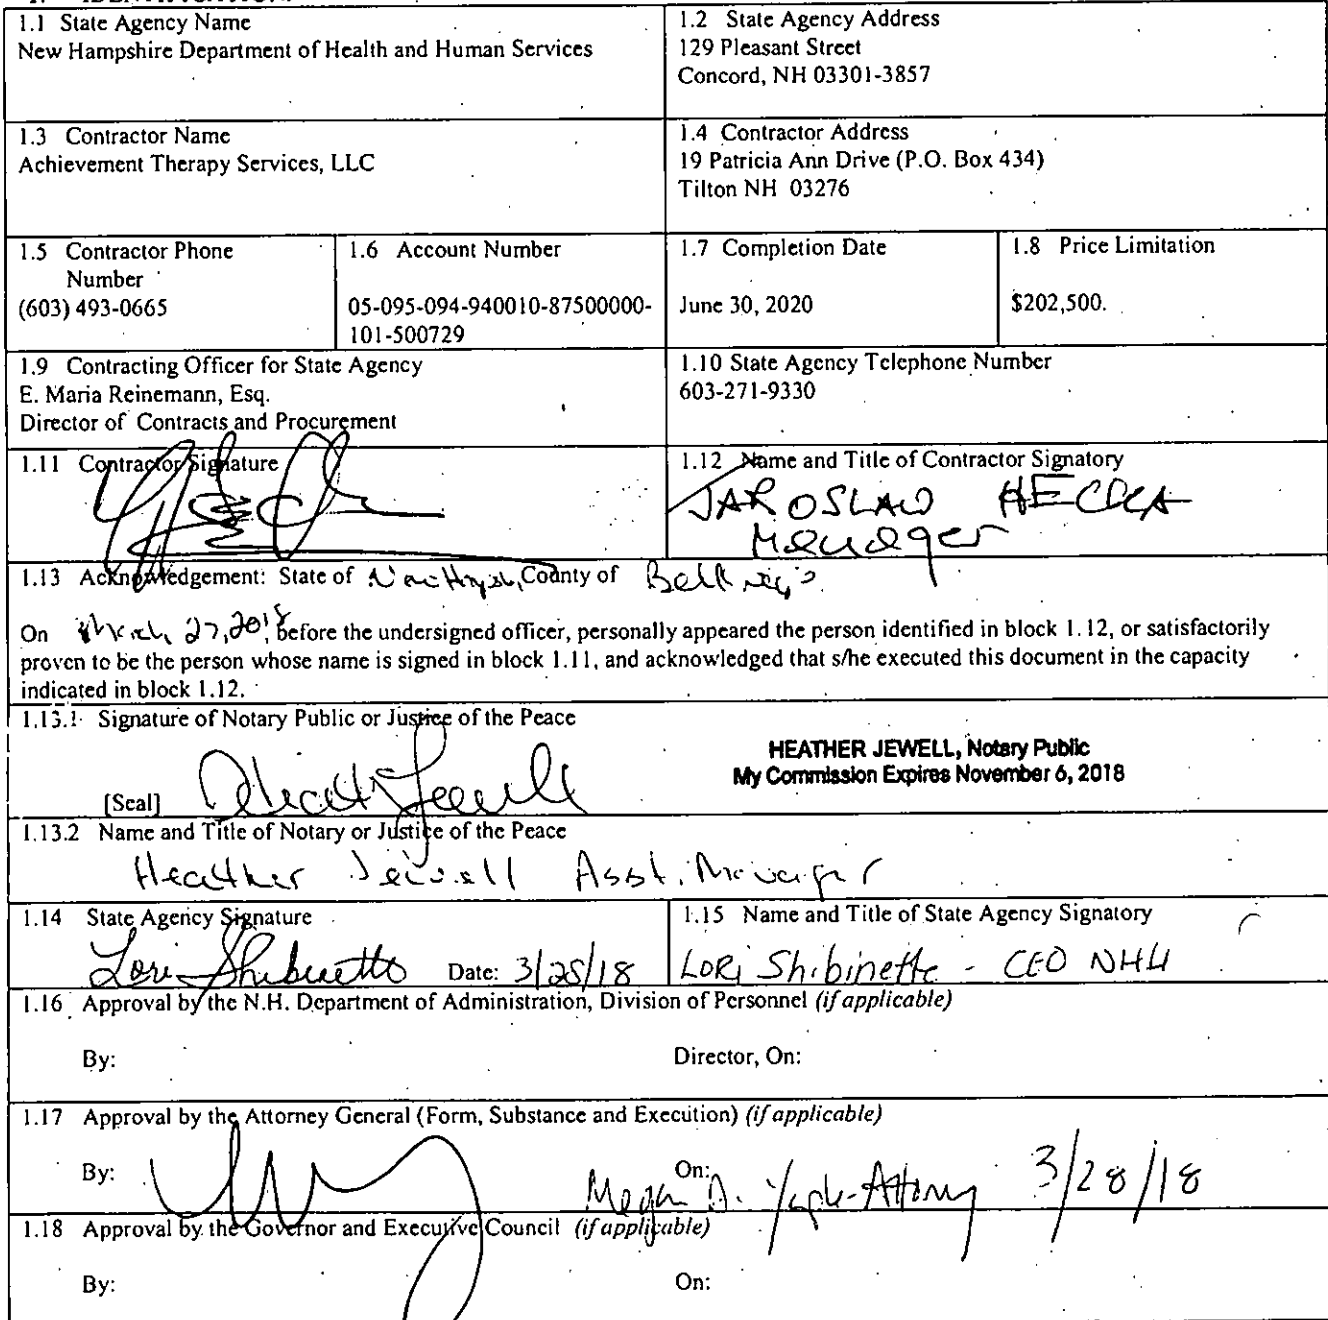 1.1 State Agency Name
New Hampshire Department of Health and Human Services
1.2 State Agency Address
129 Pleasant Street
Concord, NH 03301-3857
1.3 Contractor Name
Achievement Therapy Services, LLC
1.4 Contractor Address
19 Patricia Ann Drive (P.O. Box 434)
Tilton NH 03276
1.5 Contractor Phone
Number
(603) 493-0665
1.6 Account Number
05-095-094-940010-87500000-
101-500729
1.7 Completion Date
June 30, 2020
1.8 Price Limitation
$202,500.
1.9 Contracting Officer for State Agency
E. Maria Reinemann, Esq.
Director of Contracts and Procurement
1.10 State Agency Telephone Number
603-271-9330
1.11 Contractor Signature
1.12 Name and Title of Contractor Signatory
JAROSLAW
Manager
1.13 Acknowledgement: State of County of
On March 27, 2018, before the undersigned officer, personally appeared the person identified in block 1.12, or satisfactorily
proven to be the person whose name is signed in block 1.11, and acknowledged that s/he executed this document in the capacity
indicated in block 1.12.
1.13.1 Signature of Notary Public or Justice of the Peace
HEATHER JEWELL, Notary Public
My Commission Expires November 6, 2018
[Seal]
1.13.2 Name and Title of Notary or Justice of the Peace
Heather Jewell Asst. Manager
1.14 State Agency Signature
Lori Shibinette Date: 3/28/18
1.15 Name and Title of State Agency Signatory
LORi Shibinette - CEO NHH
1.16 Approval by the N.H. Department of Administration, Division of Personnel (if applicable)
By: Director, On:
1.17 Approval by the Attorney General (Form, Substance and Execution) (if applicable)
By: On: Megan A. Yaple-Attorney 3/28/18
1.18 Approval by the Governor and Executive Council (if applicable)
By: On: